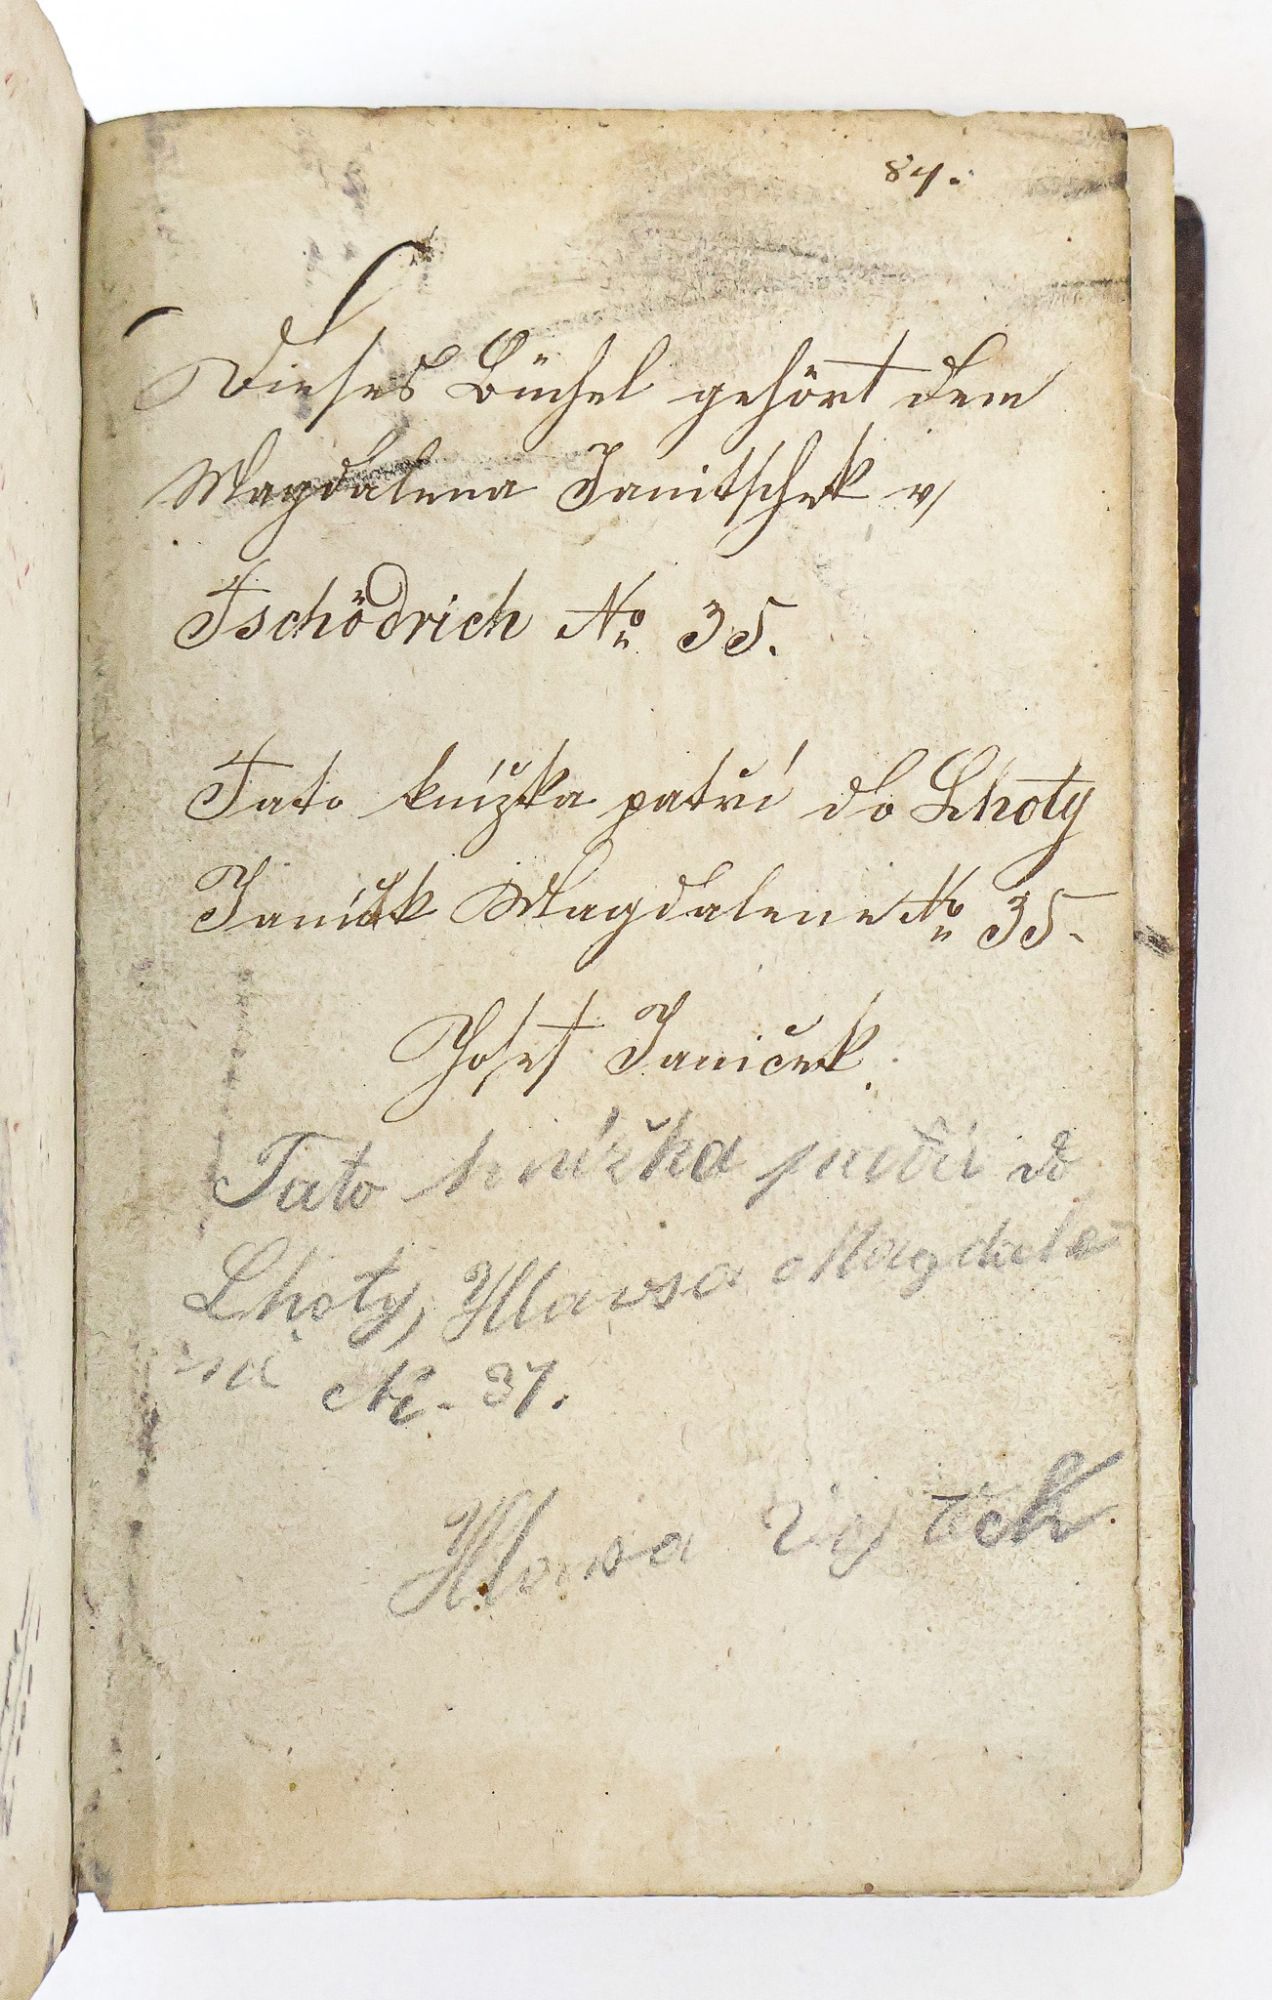 84.
Dieses Büchel gehört dem
Magdalena Janitschek v/
Tschödrich No 35.
Tato knížka patří do Lhoty
Janíček Magdalene No 35.
Josef Janiček.
Tato knížka patří do
Lhoty, Hlavsa Magdale
na Nč. 37.
Hlavsa Vojtěch